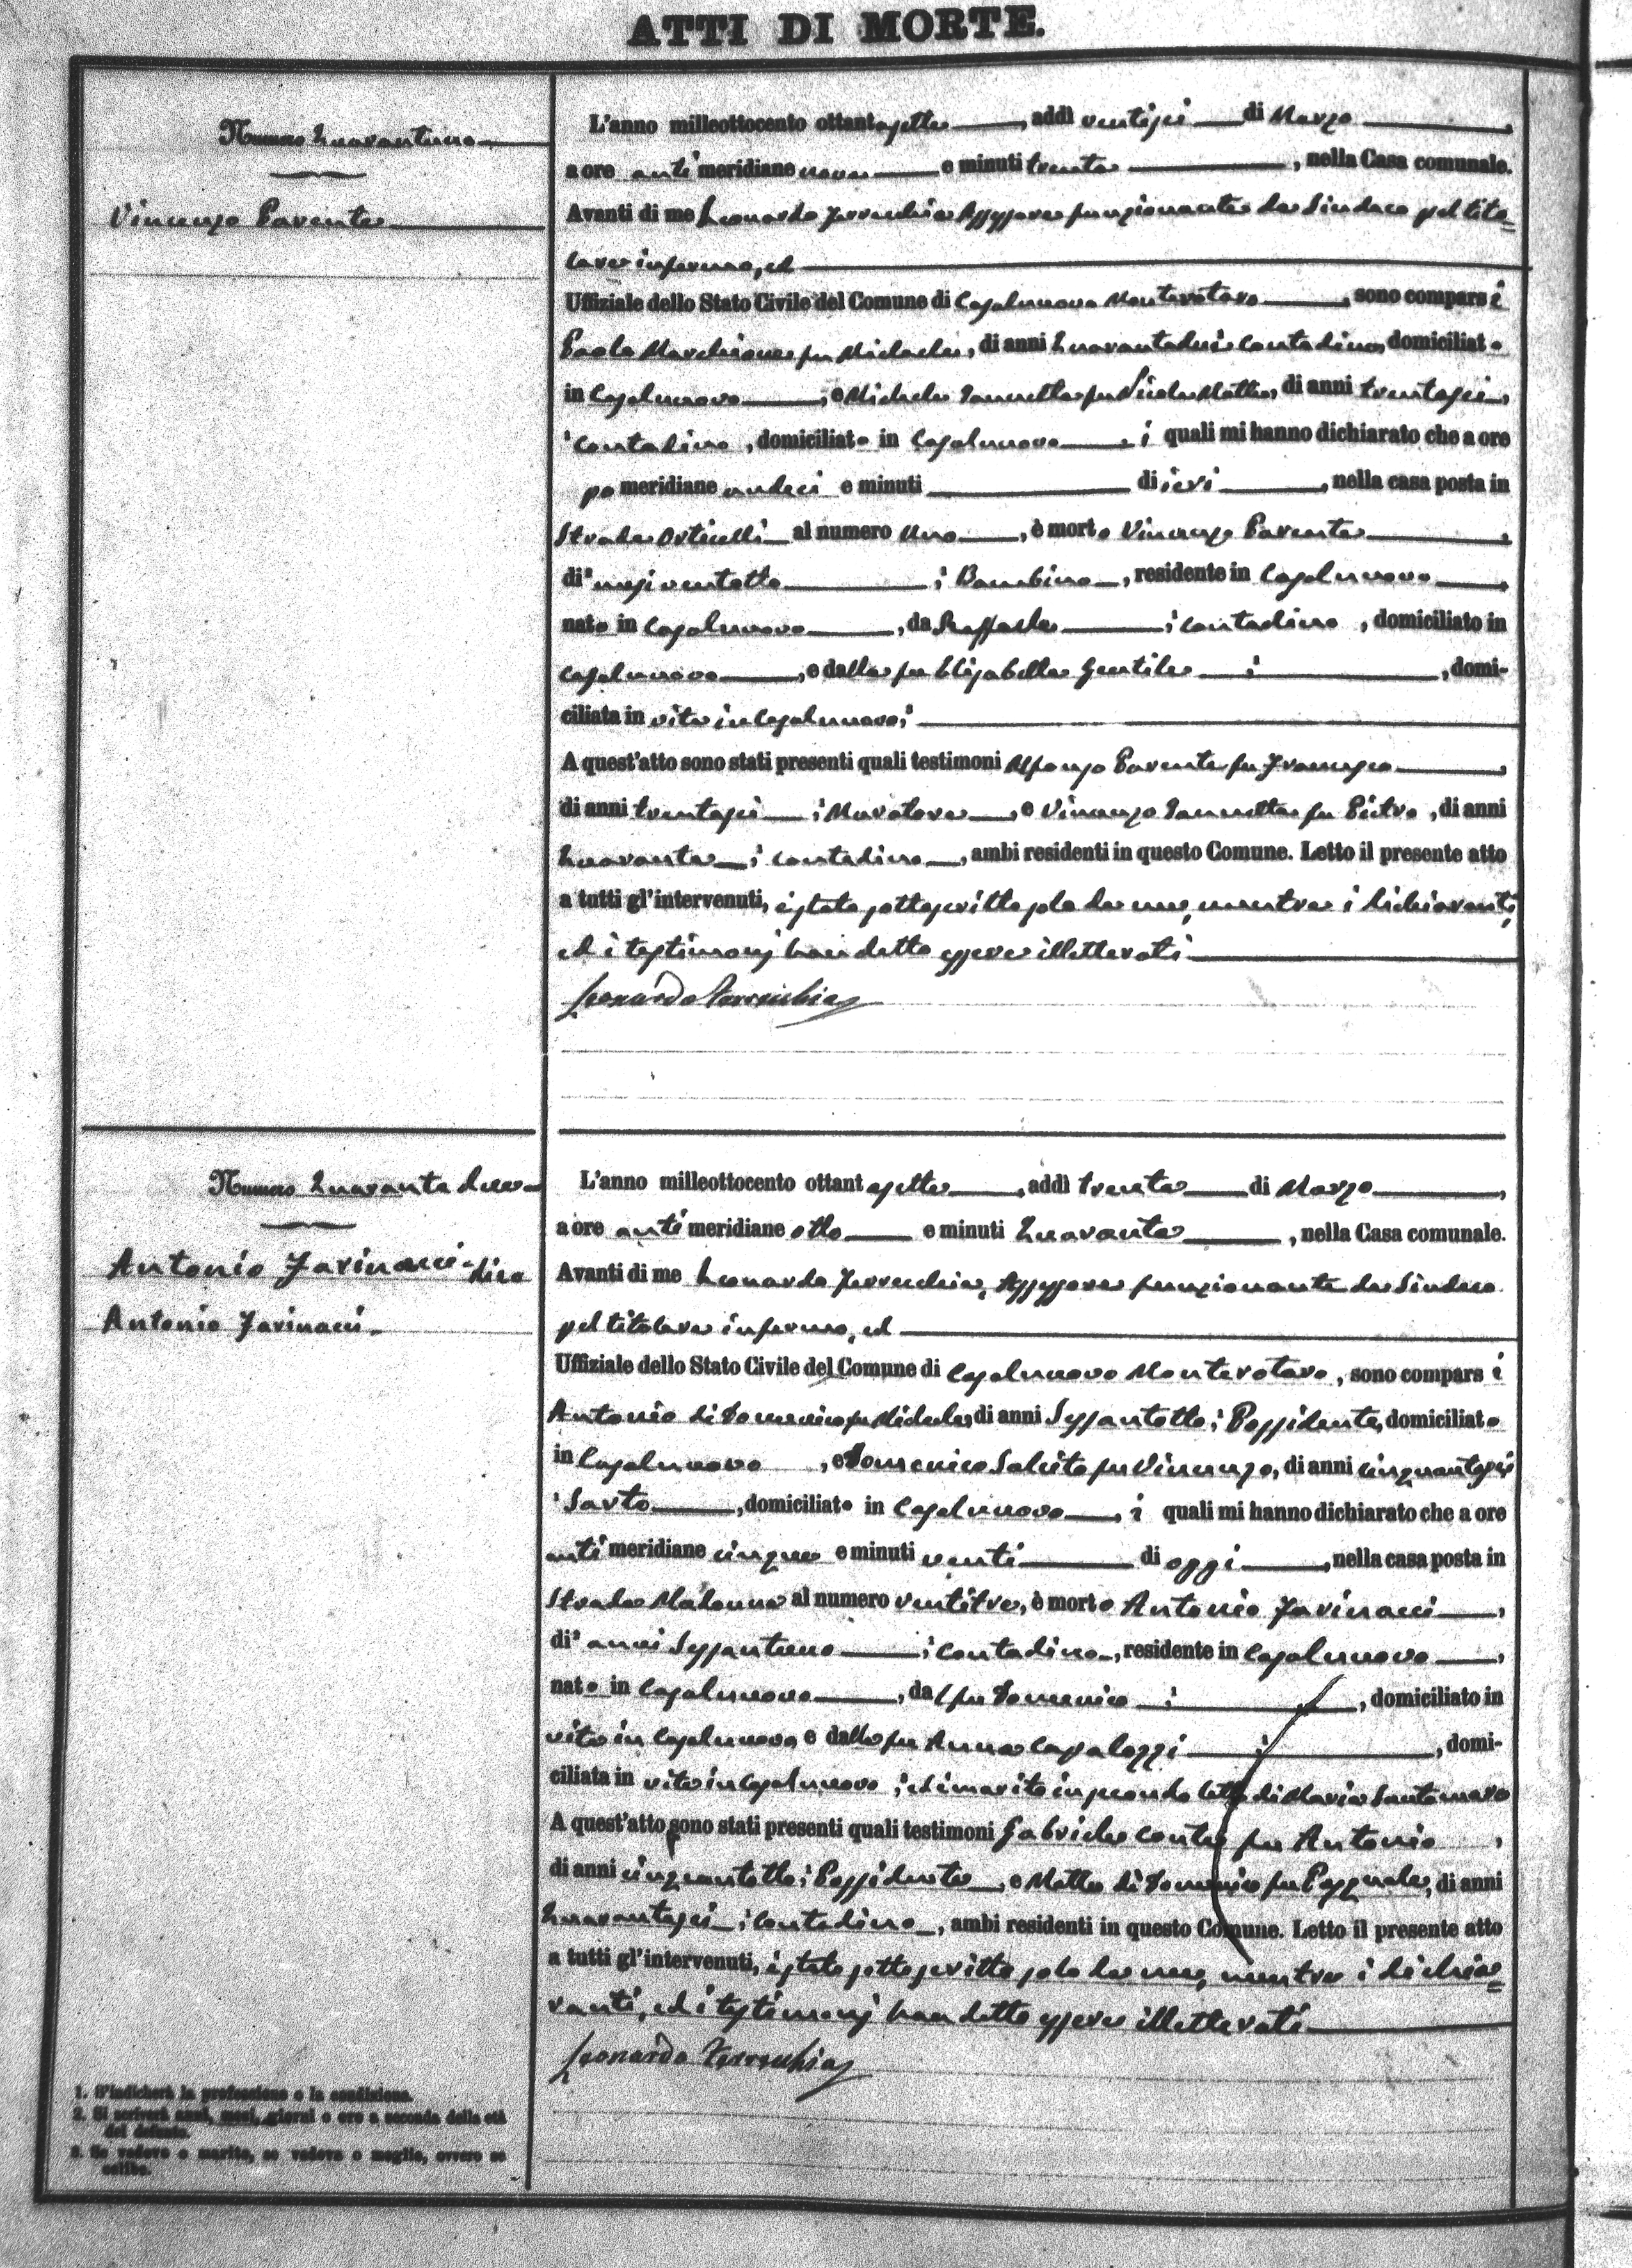 ATTI DI MORTE.
Numero Quarantuno
Vincenzo Parente
L'anno milleottocento ottantasette, addì ventisei di Marzo,
a ore anti meridiane nove e minuti trenta, nella Casa comunale.
Avanti di me Leonardo Ferrecchia Assessore funzionante da Sindaco pel tito=
lare infermo, ed
Uffiziale dello Stato Civile del Comune di Casalnuovo Monterotaro, sono comparsi
Paolo Marchione fu Michele, di anni Quarantadue; contadino, domiciliato
in Casalnuovo; e Michele Iannetta fu Nicola Matteo, di anni trentasei,
contadino, domiciliato in Casalnuovo, i quali mi hanno dichiarato che a ore
po meridiane undeci e minuti di ieri, nella casa posta in
Strada Orticelli al numero Uno, è morto Vincenzo Parente,
di mesi ventotto; Bambino, residente in Casalnuovo,
nato in Casalnuovo, da Raffaele; contadino, domiciliato in
Casalnuovo, e dalla fu Elisabetta Gentile; , domi-
ciliata in vita in Casalnuovo;
A quest'atto sono stati presenti quali testimoni Alfonso Parente fu Francesco,
di anni trentasei; Muratore, e Vincenzo Iannetta fu Pietro, di anni
Quaranta; contadino, ambi residenti in questo Comune. Letto il presente atto
a tutti gl'intervenuti, è stato sottoscritto solo da me, mentre i dichiaranti,
ed i testimonj han detto essere illetterati
Leonardo Ferrecchia
Numero Quaranta due
Antonio Farinacci-dico
Antonio Farinacci.
L'anno milleottocento ottantasette, addì trenta di Marzo,
a ore anti meridiane otto e minuti Quaranta, nella Casa comunale.
Avanti di me Leonardo Ferrecchia, Assessore funzionante da Sindaco
pel titolare infermo, ed
Uffiziale dello Stato Civile del Comune di Casalnuovo Monterotaro, sono comparsi
Antonio di Domenico fu Michele, di anni Sessantotto; Possidente, domiciliato
in Casalnuovo, e Domenico Salcito fu Vincenzo, di anni cinquantasei
Sarto, domiciliato in Casalnuovo, i quali mi hanno dichiarato che a ore
anti meridiane cinque e minuti venti di oggi, nella casa posta in
Strada Madonna al numero ventitre, è morto Antonio Farinacci,
di anni Sessantuno; contadino, residente in Casalnuovo,
nato in Casalnuovo, dal fu Domenico; , domiciliato in
vita in Casalnuovo e dalla fu Anna Capalozzi; , domi-
ciliata in vita in Casalnuovo; ed marito in secondo letto di Maria Santomaro
A quest'atto sono stati presenti quali testimoni Gabriele Conte fu Antonio,
di anni cinquantotto; Possidente, e Matteo di Domenico fu Pasquale, di anni
Quarantasei; contadino, ambi residenti in questo Comune. Letto il presente atto
a tutti gl'intervenuti, è stato sottoscritto solo da me, mentre i dichia=
ranti, ed i testimonj han detto essere illetterati
Leonardo Ferrecchia
1. S'indicherà la professione o la condizione.
2. Si scriverà anni, mesi, giorni o ore a seconda della età
del defunto.
3. Se vedovo o marito, se vedova o moglie, ovvero se
celibe.